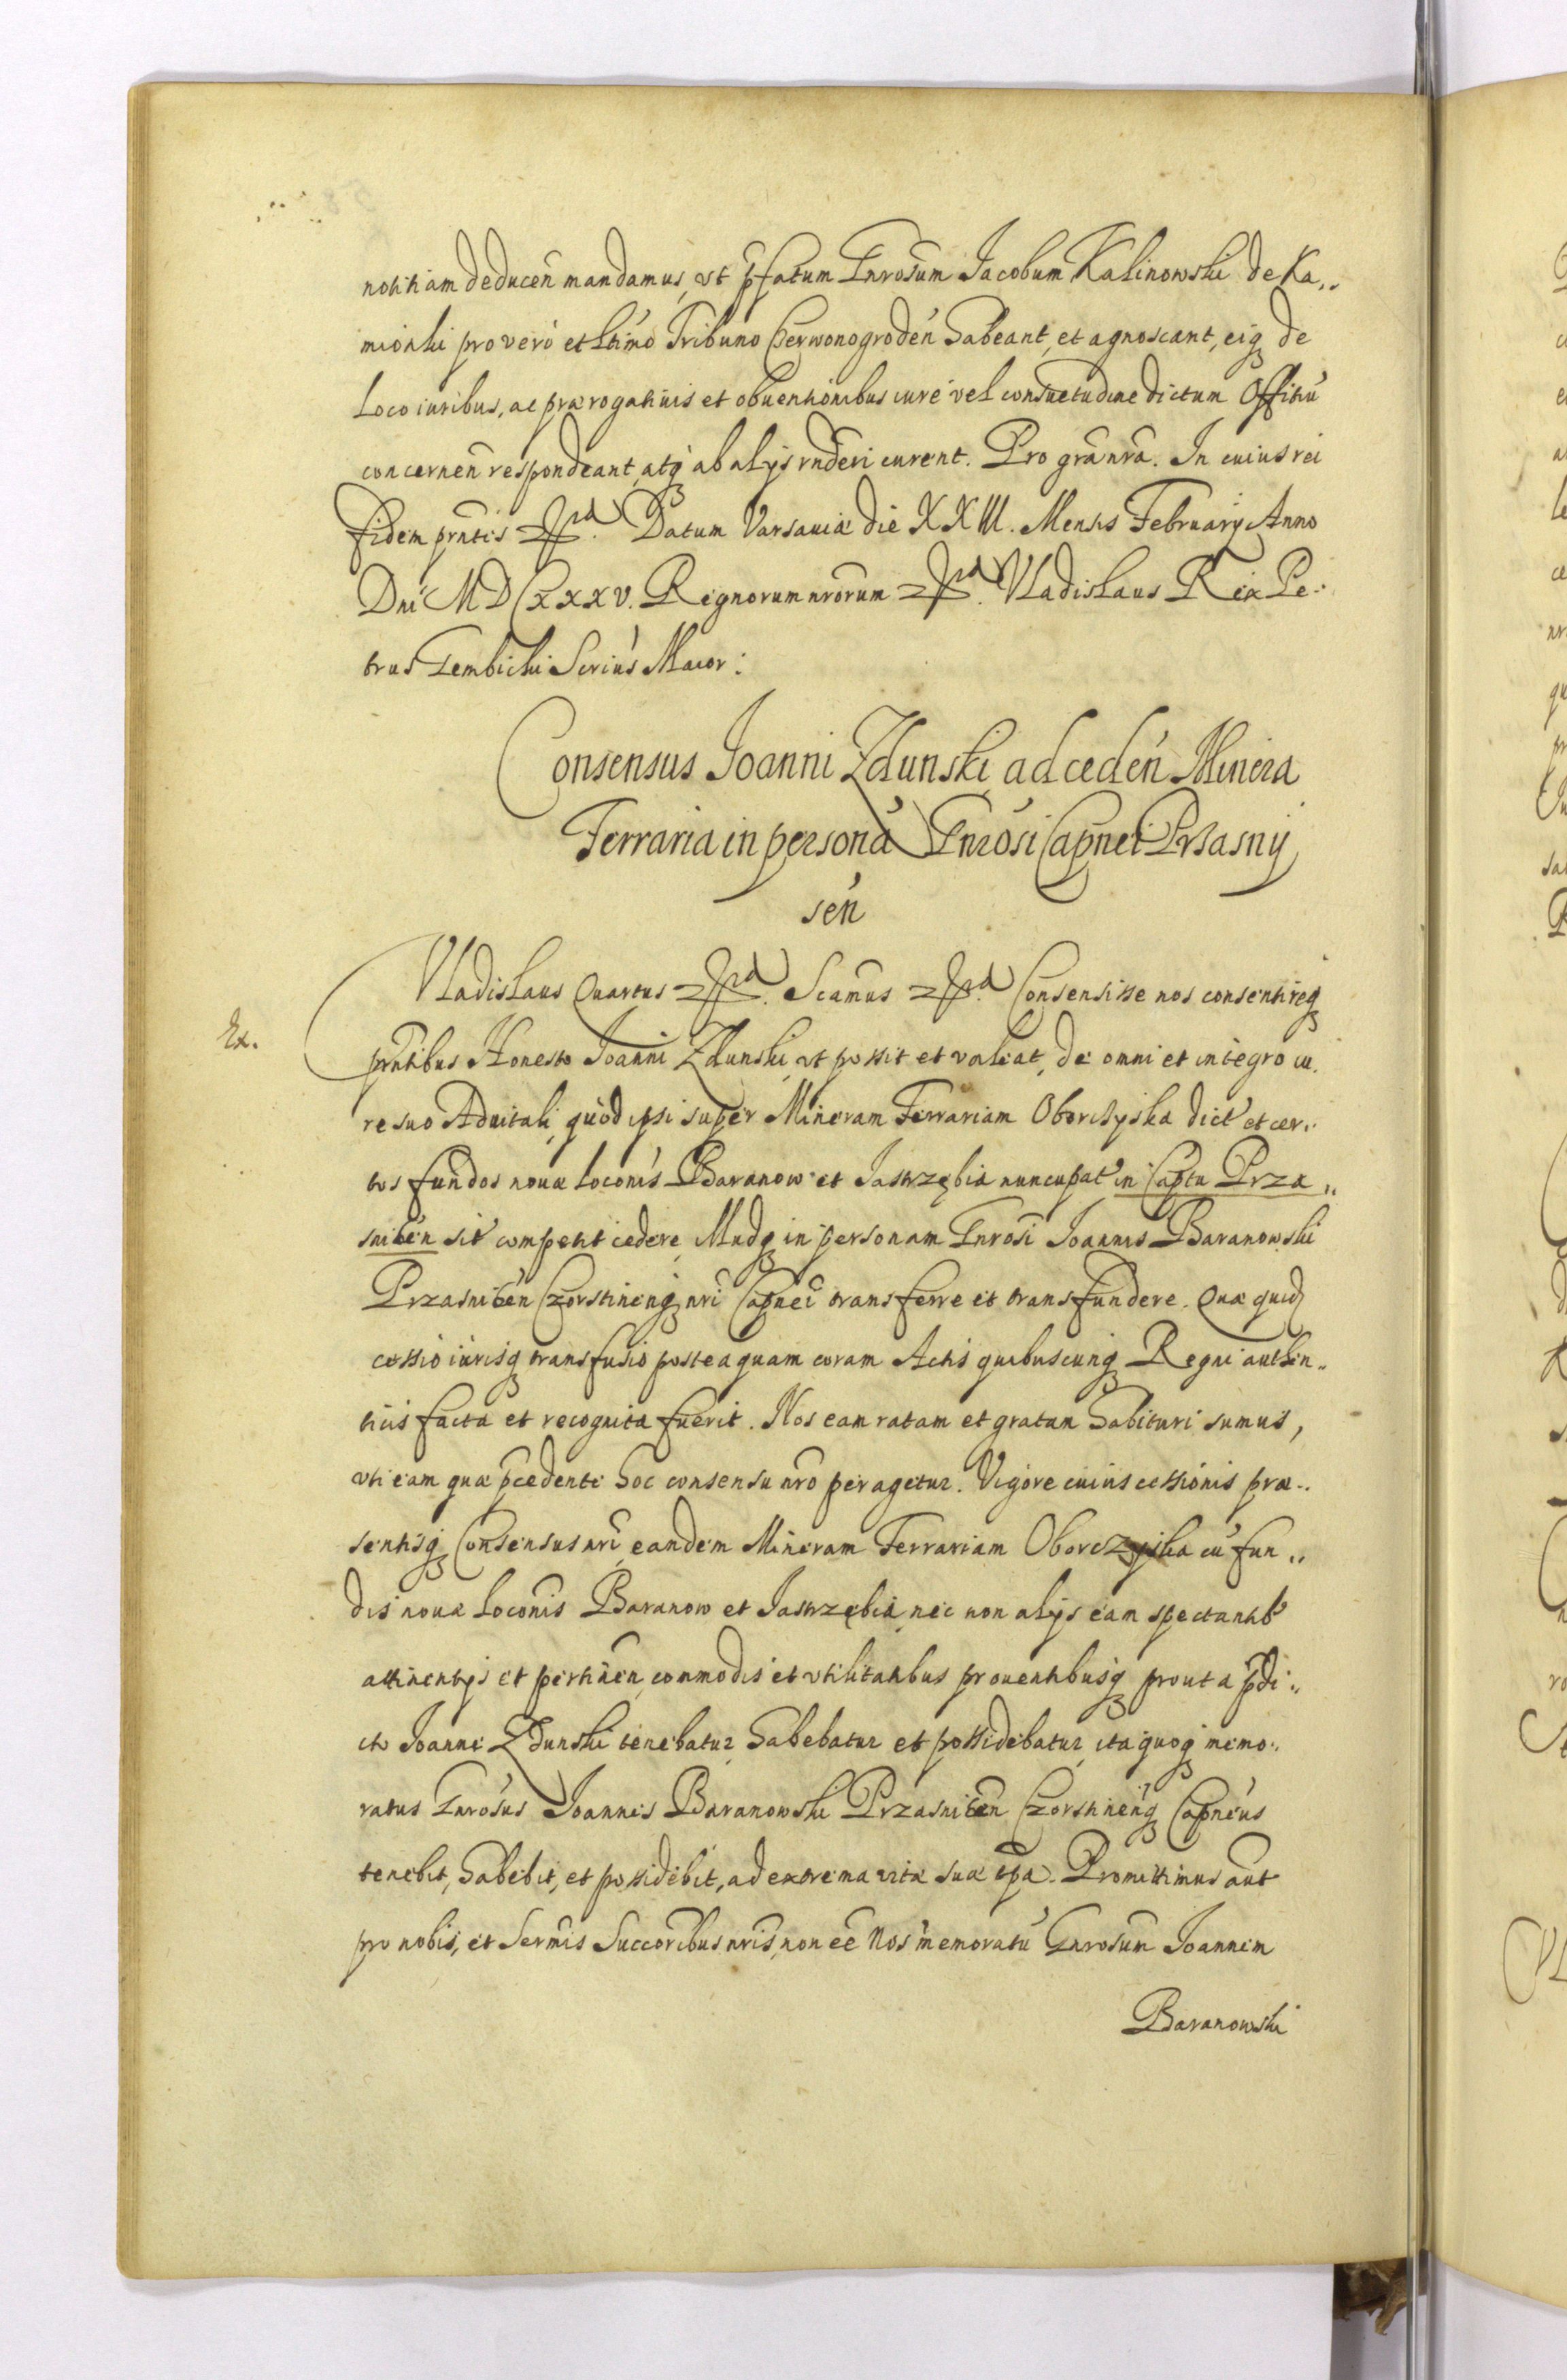 notitiam deducen̄ mandamus, vt p̄fatum Gnrōsum Jacobum Kalinowski de Ka„
mionki pro vero et ltīmo Tribuno Czerwonogroden̄ habeant, et agnoscant, eiq₃ de
Loco iuribus, ac prærogatiuis et obuentionibus iure vel consuetudine dictum Offitiū
concernen̄ respondeant, atq₃ ab alijs rn̄deri curent. Pro grā nrā. In cuius rei
fidem prn̄tis etc. Datum Varsauiæ die XXIII. Mensis Februarij Anno
Dnī MDCxxxv. Regnorum nrōrum etc. Vladislaus Rex Pe„
trus Gembicki Scriūs Maior:
Consensus Joanni Zdunski ad ceden̄ Minera
Ferraria in personā Gnrōsi Capnei Przasnij
sen̄
Ex.
Vladislaus Quartus etc. Scamūs etc. Consensisse nos consentireq₃
prn̄tibus Honesto Joanni Zdunski, vt possit et valeat, de omni et integro iu„
re suo Aduitali, quod ipsi super Mineram Ferrariam Oborczyska dict̄ et cer„
tos fundos nouæ locōnis Baranow et Jastrzębia nuncupat̄ in Captū Prza„
snicen̄ sit̄ competit cedere, Illudq₃ in personam Gnrōsi Joannis Baranowski
Przasnicen̄ Czorstinenq₃ nrī Capnei transferre et transfundere. Quæ quid̄
cessio iurisq₃ transfusio posteaquam coram Actis quibuscunq₃ Regni authen„
ticis facta et recognita fuerit. Nos eam ratam et gratam habituri sumus,
vti eam quæ p̄cedente hoc consensu nrō peragetur. Vigore cuius cessionis præ„
sentisq₃ Consensus nrī, eandem Mineram Ferrariam Oborczyska cū fun„
dis nouæ locōnis Baranow et Jastrzębia, nec non alijs eam spectantib⁹
attinentijs et pertinen̄, commodis et vtilitatibus prouentibusq₃ prout a p̄di„
cto Joanne Zdunski tenebatur, habebatur et possidebatur, ita quoq₃ memo„
ratus Gnrōsus Joannes Baranowski Przasnicen̄ Czorstinenq₃ Capneus
tenebit, habebit, et possidebit, ad extrema vitæ suæ tp̄a. Promittimus aūt
pro nobis, et Sermīs Succoribus nrīs, non eē Nos memoratū Gnrōsum Joannem
Baranowski